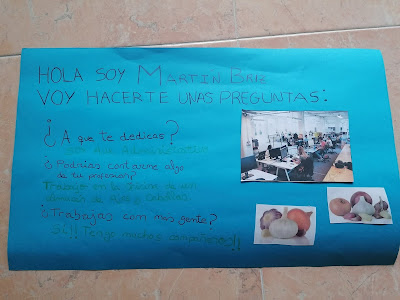 HOLA SOY MARTIN
VOY HACERTE UNAS PREGUNTAS:
¿A que te dedicas?
¿Podrias contarme algo
de tu profesion?
Trabajo en la
almacén de
¿Trabajas con mas gente?
Si!! Tengo muchos compañeros!!